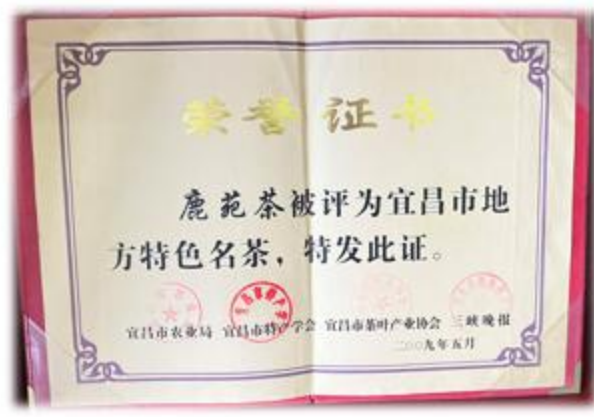 荣誉证书
鹿苑茶被评为宜昌市地
方特色名茶，特发此证。
宜昌市农业局 宜昌市特产学会 宜昌市茶叶产业协会 三峡晚报
二〇〇九年五月